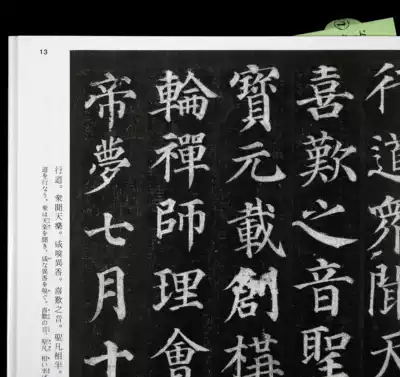 13
①
行道眾聞天
喜歎之音聖
寶元載創構
輪禪師理會
帝夢七月十
行道。衆聞天樂。咸嗅異香。喜歎之音。聖凡相半。
道を行なう。衆は天楽を聞き、咸な異香を嗅ぐ。喜歎の音、聖凡、相い半ば